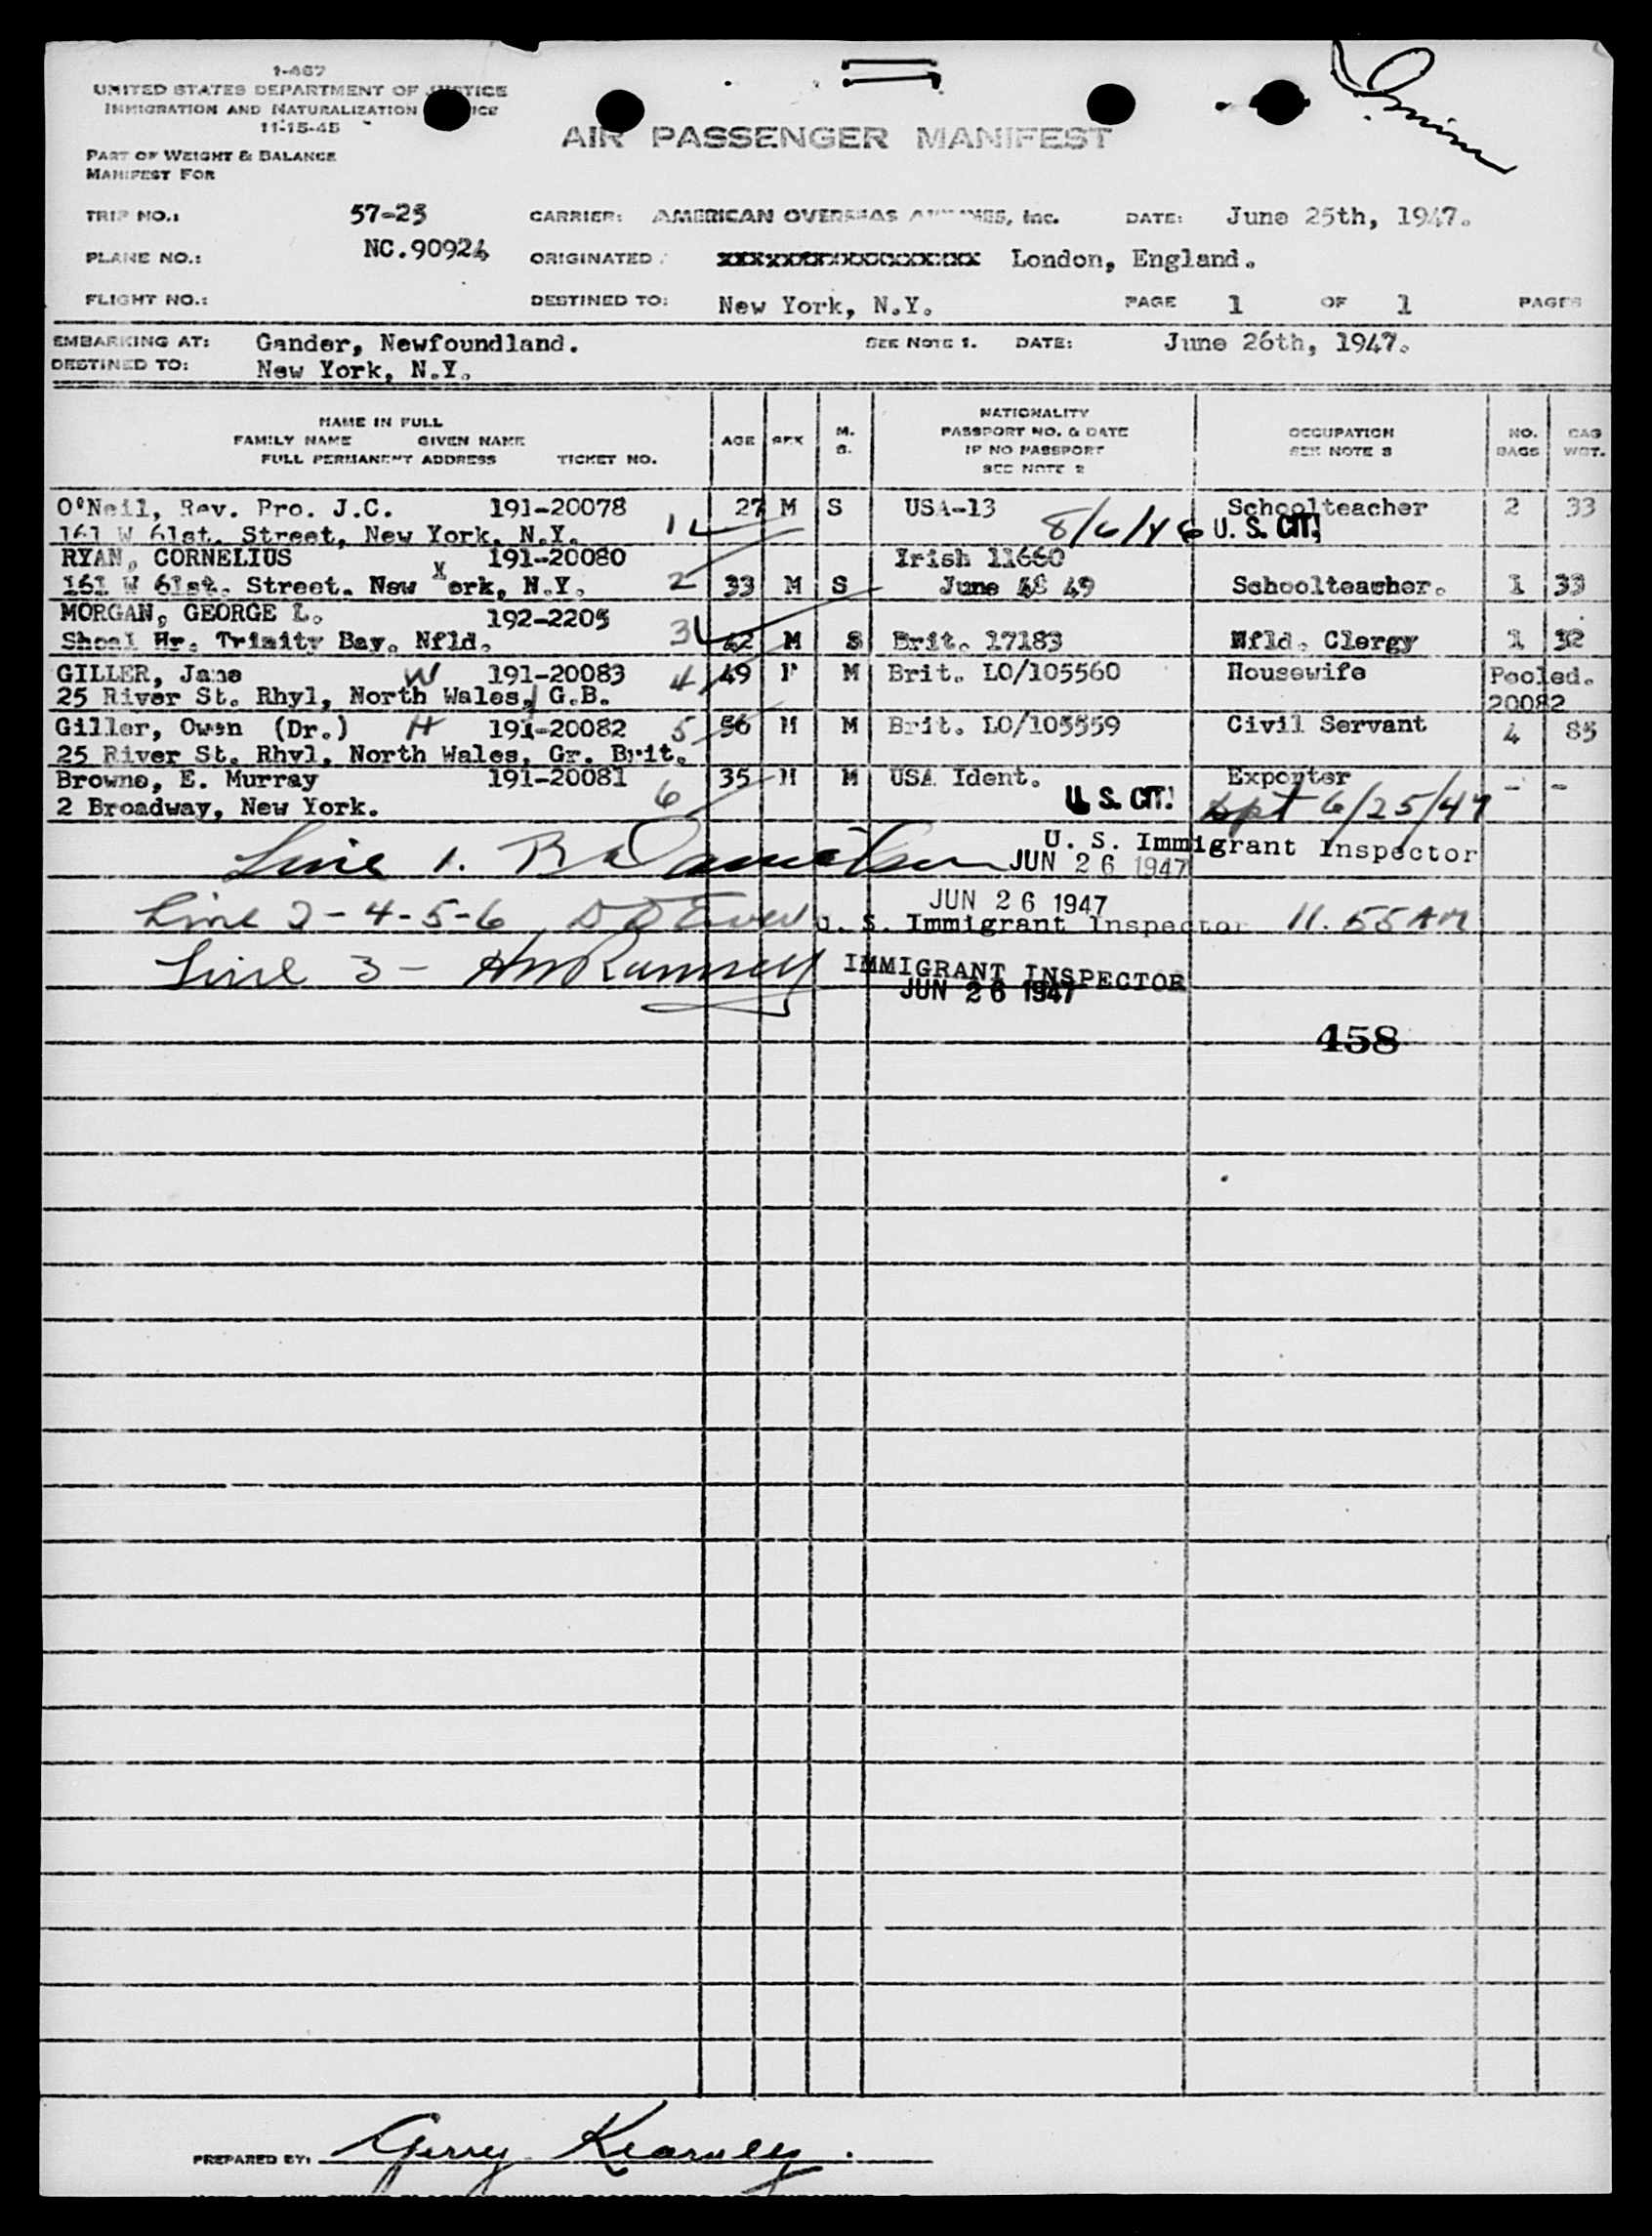 1-467
UNITED STATES DEPARTMENT OF JUSTICE
IMMIGRATION AND NATURALIZATION
11-15-45
AIR PASSENGER MANIFEST
PART OF WEIGHT & BALANCE
MANIFEST FOR
TRIP NO.: 57-25 CARRIER: AMERICAN OVERSEAS AIRLINES, Inc. DATE: June 25th, 1947.
PLANE NO.: NC.90924 ORIGINATED: London, England.
FLIGHT NO.: DESTINED TO: New York, N.Y. PAGE 1 OF 1 PAGES
EMBARKING AT: Gander, Newfoundland. SEE NOTE 1. DATE: June 26th, 1947.
DESTINED TO: New York, N.Y.
NAME IN FULL
FAMILY NAME GIVEN NAME
FULL PERMANENT ADDRESS TICKET NO.
AGE SEX M. S.
NATIONALITY
PASSPORT NO. & DATE
IF NO PASSPORT
SEE NOTE 2
OCCUPATION
SEE NOTE 3
NO. BAGS
WGT.
O'Neil, Rev. Bro. J.C. 191-20078 27 M S USA-13 Schoolteacher 2 33
161 W 61st. Street, New York, N.Y. 1 8/6/46 U. S. CIT.
RYAN, CORNELIUS 191-20080 Irish 11660
161 W 61st. Street. New York, N.Y. 2 33 M S June 48 49 Schoolteacher. 1 33
MORGAN, GEORGE L. 192-2205
Shoal Hr. Trinity Bay. Nfld. 3 62 M S Brit. 17183 Nfld. Clergy 1 32
GILLER, Jane W 191-20083 4 49 F M Brit. LO/105560 Housewife Pooled.
25 River St. Rhyl, North Wales, G.B. 20082
Giller, Owen (Dr.) H 191-20082 5 56 M M Brit. LO/105559 Civil Servant 4 85
25 River St. Rhyl, North Wales, Gr. Brit.
Browne, E. Murray 191-20081 35 M M USA Ident. Exporter - -
2 Broadway, New York. 6 U. S. CIT. 6/25/47
Line 1. U. S. Immigrant Inspector
JUN 26 1947
JUN 26 1947
Line 2-4-5-6 U. S. Immigrant Inspector 11.55 AM
Line 3- IMMIGRANT INSPECTOR
JUN 26 1947
458
PREPARED BY: Gerry Kearney.